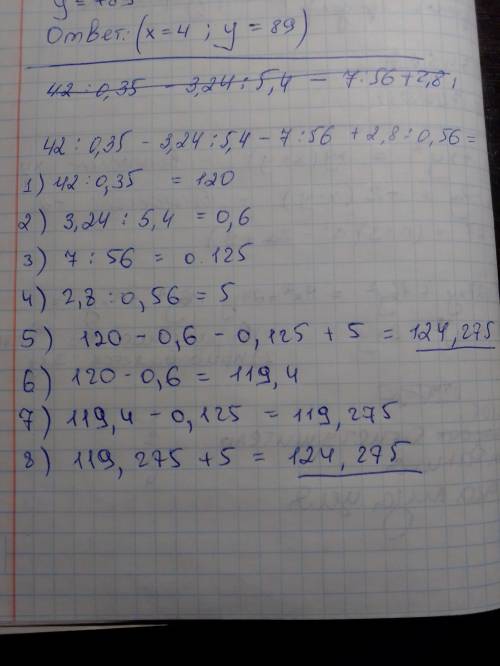 Ответ: (x=4 ; y = 89)
42 : 0,35 - 3,24 : 5,4 - 7:56 + 2,8,
42 : 0,35 - 3,24 : 5,4 - 7 : 56 + 2,8 : 0,56 =
1) 42 : 0,35 = 120
2) 3,24 : 5,4 = 0,6
3) 7 : 56 = 0.125
4) 2,8 : 0,56 = 5
5) 120 - 0,6 - 0,125 + 5 = 124,275
6) 120 - 0,6 = 119,4
7) 119,4 - 0,125 = 119,275
8) 119,275 + 5 = 124,275